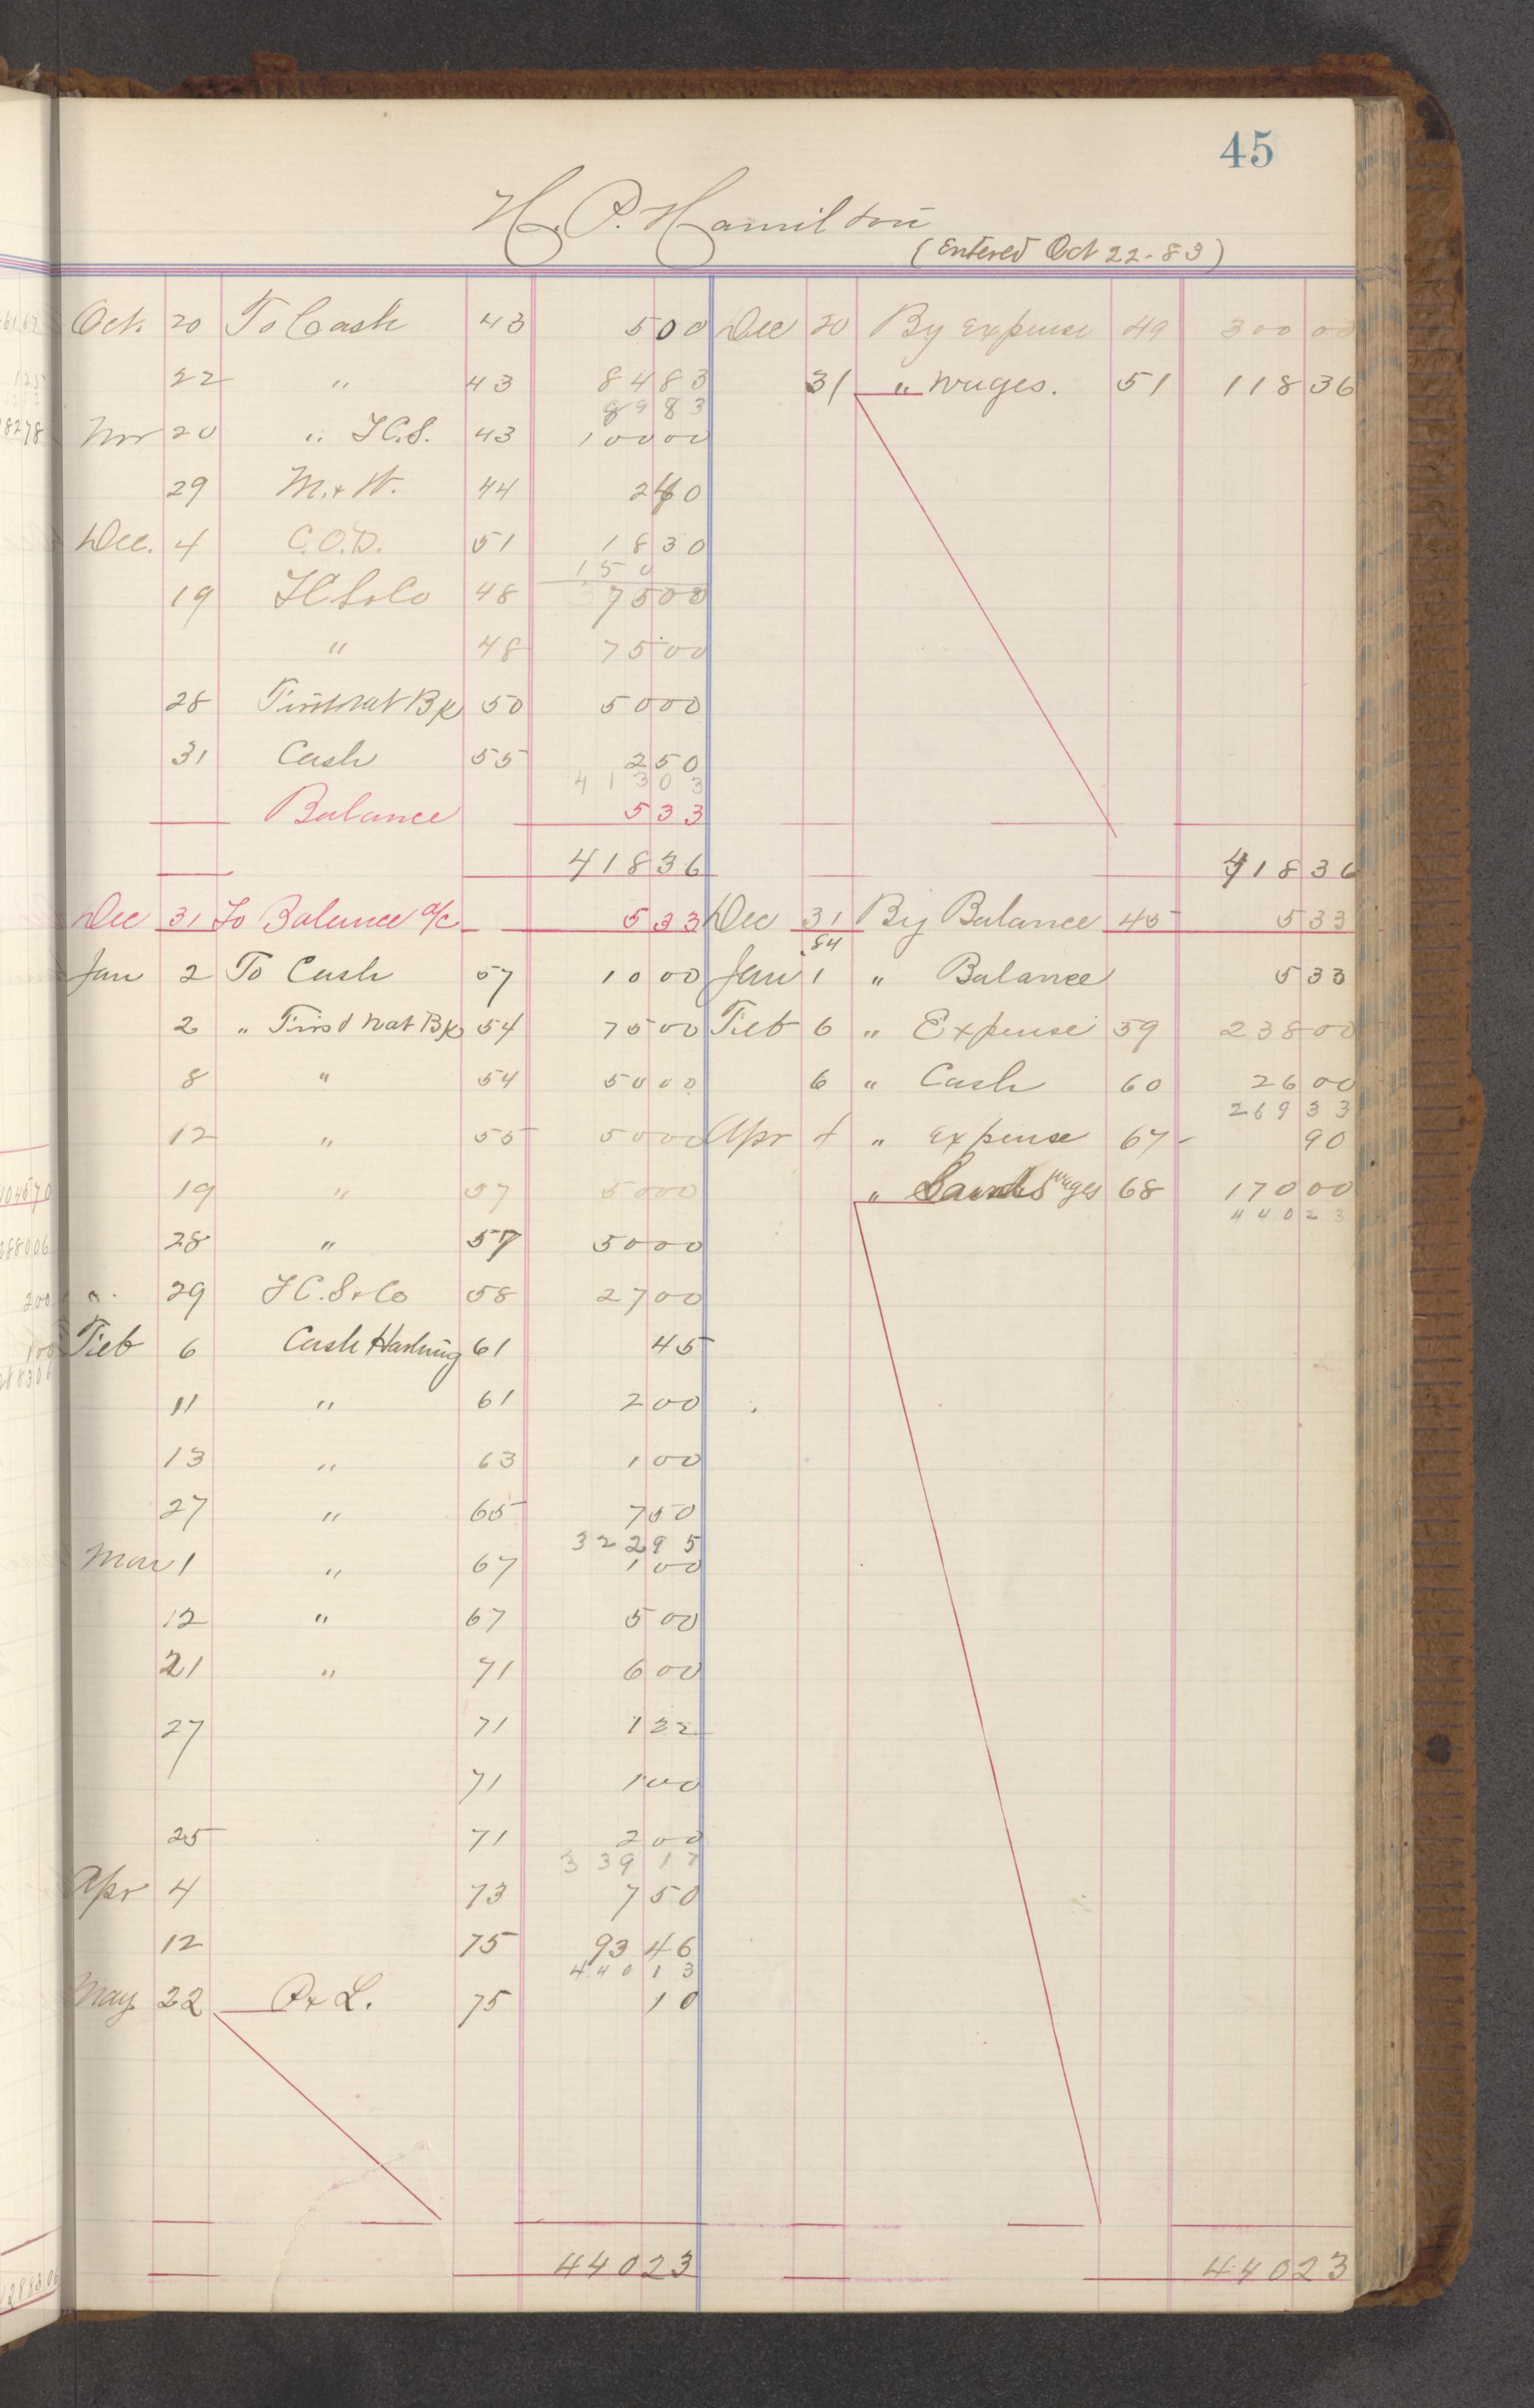 45
H. P. Hamilton
(Entered Oct 22-83)
Oct. 20 To Cash 43 5 00 Dec 20 By Expense 49 300 00
22 " 43 84 83 31 " Wages. 51 118 36
89 83
Nov 20 " J C. S. 43 100 00
29 M. & W. 44 2 40
Dec. 4 C.O.D. 51 18 30
150
19 J C S & Co 48 75 00
" 48 75 00
28 First Nat Bk 50 50 00
31 Cash 55 2 50
413 03
Balance 5 33
418 36 418 36
Dec 31 To Balance a/c 5 33 Dec 31 By Balance 45 5 33
84
Jan 2 To Cash 57 10 00 Jan 1 " Balance 5 33
2 " First Nat Bk 54 75 00 Feb 6 " Expense 59 238 00
8 " 54 50 00 6 " Cash 60 26 00
269 33
12 " 55 50 00 Apr 1 " Expense 67 90
19 " 57 50 00 " wages 68 170 00
440 23
28 " 57 50 00
29 J C. S & Co 58 27 00
Feb 6 Cash Hashing 61 45
11 " 61 2 00
13 " 63 1 00
27 " 65 7 50
322 95
Mar 1 " 67 1 00
12 " 67 5 00
21 " 71 6 00
27 71 1 22
71 1 00
25 71 2 00
339 17
Apr 4 73 7 50
12 75 93 46
440 13
May 22 P & L. 75 10
440 23 440 23